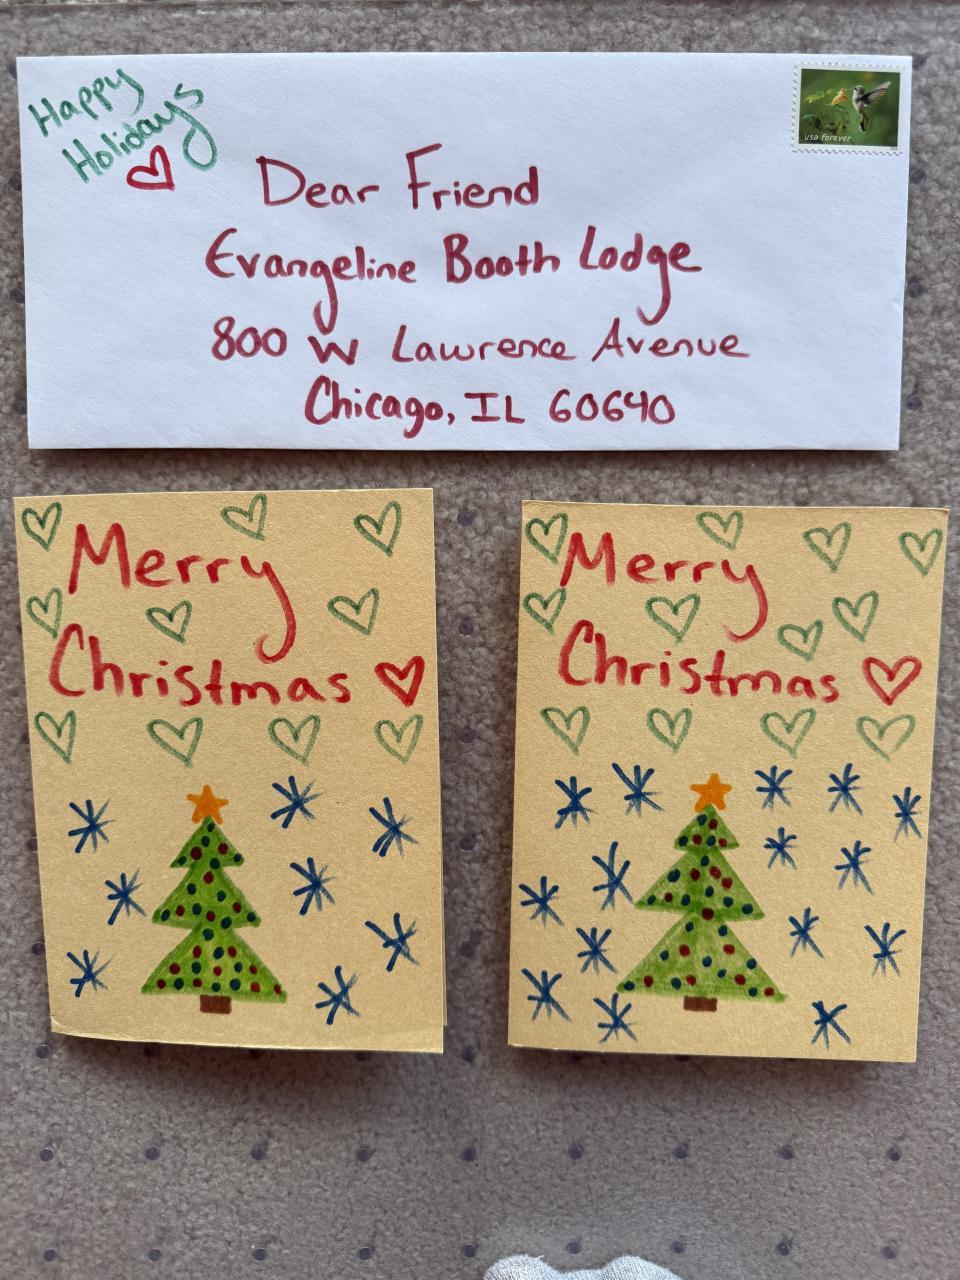 Happy
Holidays
usa forever
Dear Friend
Evangeline Booth Lodge
800 W Lawrence Avenue
Chicago, IL 60640
Merry
Christmas
Merry
Christmas